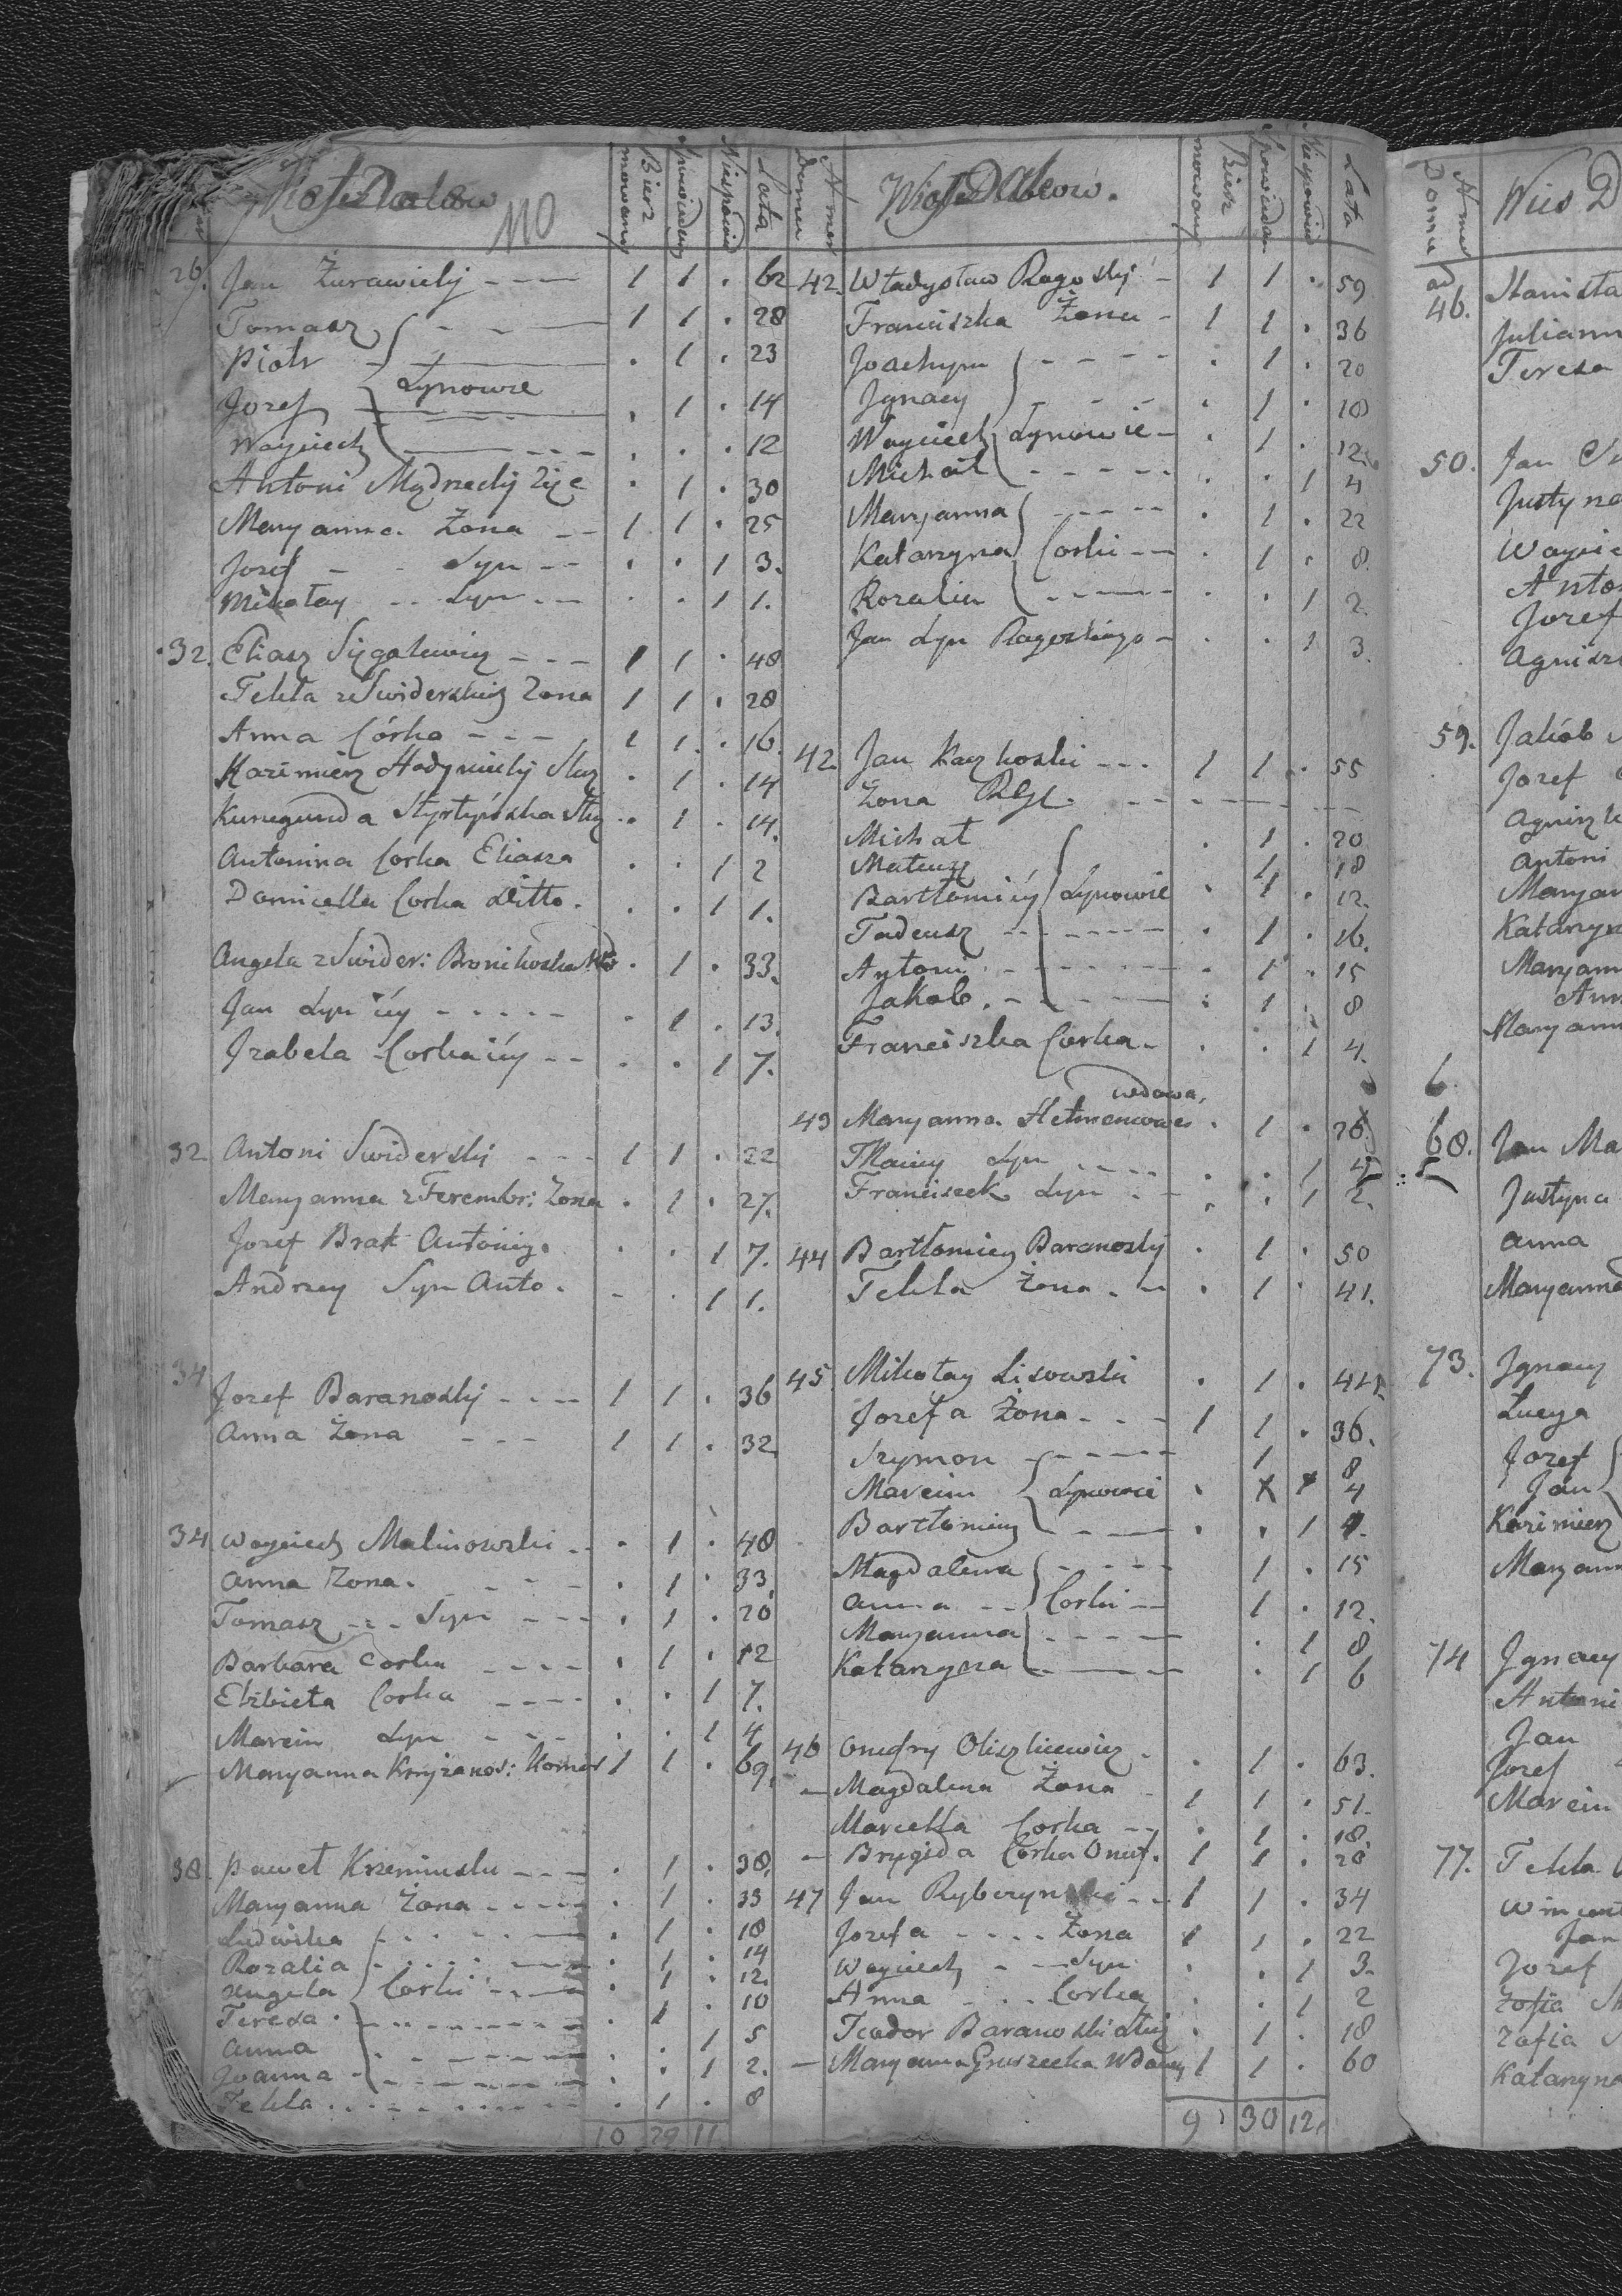 Bierz
mowany
Spowiedzi
Niespowied
Lata
110
26. Jan Żurawiely - - - 1 1 . 62
Tomasz - - - 1 1 . 28
Piotr . 1 . 23
Jozef Synowie . 1 . 14
Woyciech - - - . . . 12
Antoni Mądrzecky . 1 . 30
Maryanna Żona - - 1 1 . 25
Jozef - - Syn - - . . 1 3.
Mikołay - - Syn - - . . 1 1.
32. Eliasz Sygalewicz - - - 1 1 . 48
Tekla z Swiderskich Żona 1 1 . 28
Anna Córka - - - 1 1 . 16.
Kazimierz Służ . 1 . 14
Kunegunda Służ . 1 . 14.
Antonina Corka Eliasza . . 1 2
Domicella Corka Ditto . . . 1 1.
Angela z Swider: Bronikoska . 1 . 33.
Jan Syn iey - - - - - . 1 . 13.
Izabela Corka iey - - . . 1 7.
32 Antoni Swidersky - - - 1 1 . 22
Maryanna z Ferembr: Żona . 1 . 27.
Jozef Brat Antonieg. . . 1 7.
Andrzey Syn Anto . . . 1 1.
34 Jozef Baranosky - - - - 1 1 . 36
Anna Żona - - - 1 1 . 32
34 Woyciech Malinowski - - . 1 . 48
Anna Zona . - - - - . 1 . 33
Tomasz - - - Syn - - - . 1 . 20
Barbara Corka - - - - . 1 . 12
Elżbieta Corka - - - - . . 1 7.
Marcin Syn - - - . . 1 4
Maryanna Krzyżanos: Komor 1 1 . 69.
38. Paweł Krzeminski - - - . 1 . 38.
Maryanna Żona - - - - . 1 . 33
Ludwika - - - - . 1 . 18
Rozalia - - - - . 1 . 14
Angela Corki - - - . 1 . 12.
Teresa . - - - - . 1 . 10
Anna . - - - - . . 1 5
Joanna - - - - . . 1 2.
Tekla . . . - - - - . 1 . 8
10 29 11
Numer
Domu
Wieś Daleow.
Bierz
mowany
Spowiedzi
Niespowied
Lata
42. Władysław Ragosky - 1 1 . 59
Franciszka Żona - 1 1 . 36
Joachym - - - - . 1 . 20
Ignacy - - - . 1 . 18
Woyciech Synowie - . 1 . 12.
Michał - - - - - . . 1 4
Maryanna - - - - . 1 . 22
Katarzyna Corki - - . 1 . 8.
Rozalia - - - - - . . 1 2.
Jan Syn Ragoskiego - . . 1 3.
42. Jan Kaczkoski - - - 1 1 . 55
Żona
Michał . 1 . 20
Mateusz 1 . 18
Bartłomiey Synowie . 1 . 12.
Tadeusz - - - - - . 1 . 16.
Antoni . - - - - - . 1 . 15
Jakob . - - - - . 1 . 8
Franciszka Corka - . . 1 4.
wdowa,
43 Maryanna Hetmanowa . 1 . 26
Maciey Syn - - - - . . 1 4
Franciszek Syn - - - . . 1 2.
44 Bartłomiey Baranosky . 1 . 50
Tekla Żona . - - . 1 . 41.
45 Mikołay Lisowski . 1 . 44.
Jozefa Żona - - - 1 1 . 36.
Szymon - - - - - 1 8
Marcin Synowie . X 4
Bartłomiey - - - . . 1 4.
Magdalena - - - - 1 . 15
Anna - - Corki - - 1 . 12.
Maryanna - - - - . 1 8
Katarzyna - - - - . 1 6
46 Onufry Oliszkiewicz . . 1 . 63.
- Magdalena Żona - 1 1 . 51.
Marcella Corka - - . 1 . 18.
- Brygida Corka Onuf. 1 1 . 28
47 Jan - - 1 1 . 34
Jozefa - - - - Żona 1 1 . 22
Woyciech - - - Syn . . 1 3.
Anna - . . Corka . . 1 2
Teodor Baranoski Służ . 1 . 18
- Maryanna Gruszecka Wdowa 1 1 . 60
9 30 12
Numer
Domu
Wieś D
46. Stanisła
Juliann
Teresa
50. Jan
Justyna
Woycie
Anto
Jozef
Agnisz
59. Jakób
Jozef
Agniszk
Antoni
Maryan
Katarzyn
Maryann
Ann
Maryann
6
68. Jan Ma
Justyna
Anna
Maryanna
73. Ignacy
Łucya
Jozef
Jan
Kazimierz
Maryann
74 Ignacy
Antoni
Jan
Jozef
Marcin
77. Tekla
Wincent
Jan
Jozef
Zofia
Zofia
Katarzyna